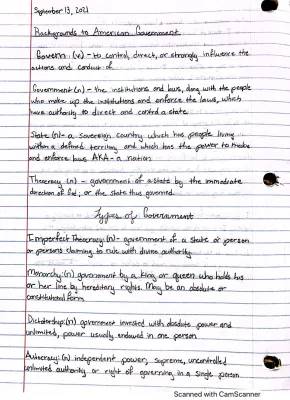 September 13, 2021
Backgrounds to American Government
Govern (v) - to control, direct, or strongly influence the
actions and conduct of
Government (n) - the institutions and laws, along with the people
who make up the institutions and enforce the laws, which
have authority to direct and control a state.
State (n) - a sovereign country which has people living
within a defined territory and which has the power to make
and enforce laws AKA - a nation
Theocracy (n) - government of a state by the immediate
direction of God; or the state thus governed.
Types of Government
Imperfect Theocracy: (n) - government of a state or person
or persons claiming to rule with divine authority.
Monarchy: (n) government by a king or queen who holds his
or her line by hereditary rights. May be an absolute or
constitutional form
Dictatorship: (n) government invested with absolute power and
unlimited, power usually endowed in one person
Autocracy: (n) independent power, supreme, uncontrolled
unlimited authority or right of governing in a single person
Scanned with CamScanner